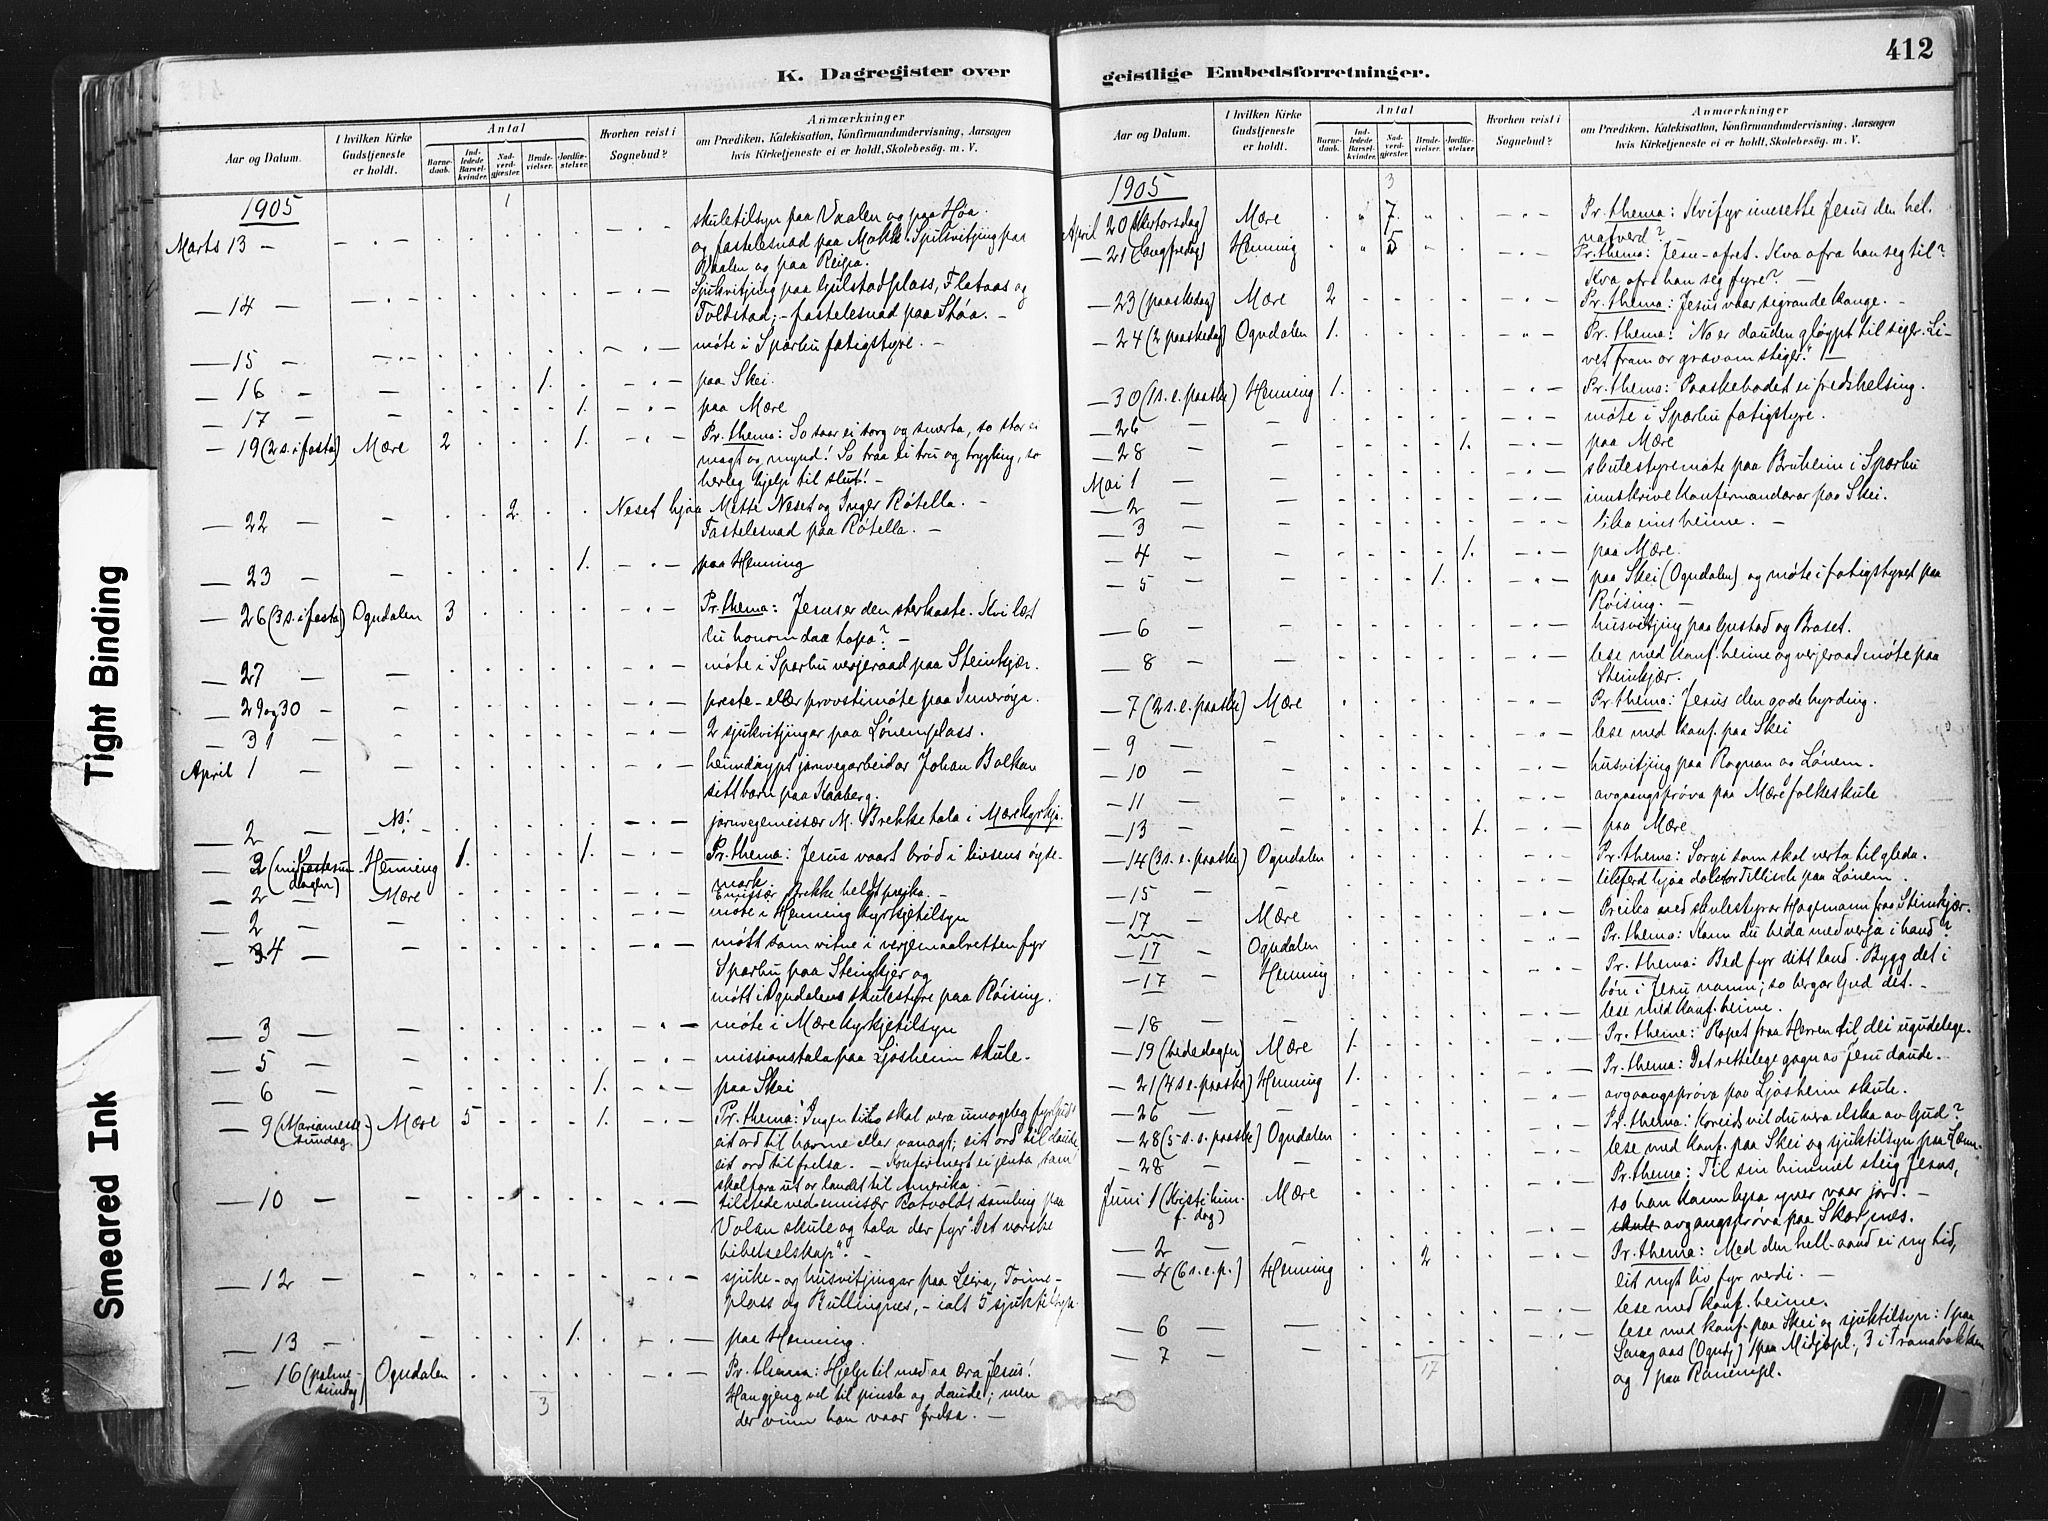 K. Dagregister over
geistlige Embedsforretninger.
412
Tight Binding
Smeared Ink
Aar og Datum.
I hvilken Kirke Gudstjeneste er holdt.
Antal
Barnedaab.
Indledede Barselkvinder.
Nadverdgjæster.
Brudevielser.
Jordfæstelser.
Hvorhen reist i Sognebud?
Anmærkninger
om Prædiken, Katekisation, Konfirmandundervisning, Aarsagen
hvis Kirketjeneste ei er holdt, Skolebesøg. m. V.
1905
skuletilsyn paa Vaalen og paa Høa.
Marts 13 —
og fastelesnad paa Mokk. Sjukvitjing paa
Vaalen og paa Reipa.
— 14 — Sjukvitjing paa Gjulstadplass, Flataas og
Tvedstad; – fastelesnad paa Støa. –
— 15 — møte i Sparbu fatigstyre. –
— 16 — 1. paa Skei.
— 17 — 1. paa Mære
— 19 (2 s. i fasta) Mære 2 1. Pr. thema: So saar ei sorg og smerta, so stor ei
magt og mynd! So traa ei tru og trygling, so
herleg hjelp til slut! –
— 22 — 2. Neset hjaa Mette Neset og Inger Rôtella. –
Fastelesnad paa Rôtella. –
— 23 — 1. paa Henning
— 26 (3 s. i fasta) Ogndalen 3 Pr. thema: Jesus er den sterkaste. Kvi læt
du honom daa tapa? –
— 27 — møte i Sparbu verjeraad paa Steinkjær.
— 29 og 30 — preste- eller provstimôte paa Inderøya.
— 31 — 2 sjukvitjingar paa Lønemplass.
April 1 — heimdøypt jarnvegarbeidar Johan Bolkan
sitt barn paa Kaaberg.
— 2 — NB! jarnvegemissær M. Brekke tala i Mære kyrkja.
— 2 (midfastesundagen) Henning 1. 1. Pr. thema: Jesus vaart brød i livsens øydemark.
— 2 — Mære Emissær Brekke heldt preika. –
— 2 — møte i Henning kyrkjetilsyn
— 4 — møtt som vitne i verjemaalretten fyr
Sparbu paa Steinkjer og
møtt i Ogndalens skulestyre paa Røising.
— 3 — møte i Mære kyrkjetilsyn
— 5 — missionstala paa Ljosheim skule.
— 6 — 1. paa Skei
— 9 (Mariamessesundag.) Mære 5 1. Pr. thema: "Ingen ting skal vera umogeleg fyr Gud"
eit ord til havne eller vanagt; eit ord til daude
eit ord til frelsa. – Konfirmert ei jenta som
skal fara ut or landet til Amerika. –
— 10 — tilstede ved emissær Rotvolds samling paa
Volan skule og tala der fyr "Det norske
bibelselskap". –
— 12 — sjuke- og husvitjingar paa Leira, Tomeplass og Rullingnes, – ialt 5 sjuktilsyn.
— 13 — 1. paa Henning.
— 16 (palmesundag) Ogndalen Pr. thema: Hjelp til med aa æra Jesus!
Han gjeng vel til pinsla og daude; men
der vinn han vaar frelsa. –
3
Aar og Datum.
I hvilken Kirke Gudstjeneste er holdt.
Antal
Barnedaab.
Indledede Barselkvinder.
Nadverdgjæster.
Brudevielser.
Jordfæstelser.
Hvorhen reist i Sognebud?
Anmærkninger
om Prædiken, Katekisation, Konfirmandundervisning, Aarsagen
hvis Kirketjeneste ei er holdt, Skolebesøg. m. V.
1905
3
April 20 (skjertorsdag) Mære 7. Pr. thema: Kvifyr innsette Jesus den hel.
natverd?
— 21 (langfredag) Henning 5 Pr. thema: Jesu-ofret. Kva ofra han seg til?
Kva ofra han seg fyre? –
— 23 (paaskedag) Mære 2 Pr. thema: Jesus vaar sigrande konge. –
— 24 (2 paaskedag) Ogndalen 1. Pr. thema: "No er dauden gløypt til siger. Livet fram or gravom stiger." –
— 30 (1 s. e. paaske) Henning 1. Pr. thema: Paaskebodet ei fredshelsing.
— 26 — møte i Sparbu fatigstyre.
— 28 — 1. paa Mære
Mai 1 — skulestyremøte paa Bruheim i Sparbu
— 2 — innskrive konfirmandarar paa Skei.
— 3 — lika eins heime. –
— 4 — 1. paa Mære.
— 5 — 1. paa Skei (Ogndalen) og møte i fatigstyret paa
Røising. –
— 6 — husvitjing paa Gustad og Braset.
— 8 — lese med konf. heime og verjeraadmøte paa
Steinkjær.
— 7 (2 s. e. paaske) Mære Pr. thema: Jesus den gode hyrding.
— 9 — lese med konf. paa Skei
— 10 — husvitjing paa Rognan og Lønem.
— 11 — avgaangsprøva paa Mære folkeskule
— 13 — 1. paa Mære
— 14 (3 s. e. paaske) Ogndalen Pr. thema: Sorgi som skal verta til gleda.
— 15 — likferd hjaa doktor Tillisch paa Lønem.
— 17 — Mære Preika med skulestyrar Hagemann fraa Steinkjær.
— 17 — Ogndalen Pr. thema: Kann du beda med verja i hand?
— 17 Henning Pr. thema: Bed fyr ditt land. Bygg det i
bøn i Jesu namn; so bergar Gud det. –
— 18 — lese med konf. heime.
— 19 (bededagen) Mære 1. Pr. thema: Ropet fraa Herren til dei ugudelege.
— 21 (4 s. e. paaske) Henning 1. Pr. thema: Det rettlege gagn av Jesu daude.
— 26 — avgaangsprøva paa Ljosheim skule.
— 28 (5 s. e. paaske) Ogndalen Pr. thema: Koreids vil du vera elska av Gud?
— 28 — lese med konf. paa Skei og sjuktilsyn paa
Juni 1 (Kristi himf. dag) Mære Pr. thema: Til sin himmel steig Jesus,
so han kann lysa yver vaar jord. –
— 2 — avgangsprøva paa Skarpnes.
— 4 (6 s. e. p.) Henning 2 Pr. thema: Med den hell. aand ei ny tid,
eit nytt liv fyr verdi. –
lese med konf. heime.
— 6 — lese med konf. paa Skei og sjuktilsyn: 1 paa
— 7 — Langaas (Ognd.) 1 paa Midjopl., 3 i Tranabakken
og 1 paa Ranempl.
17